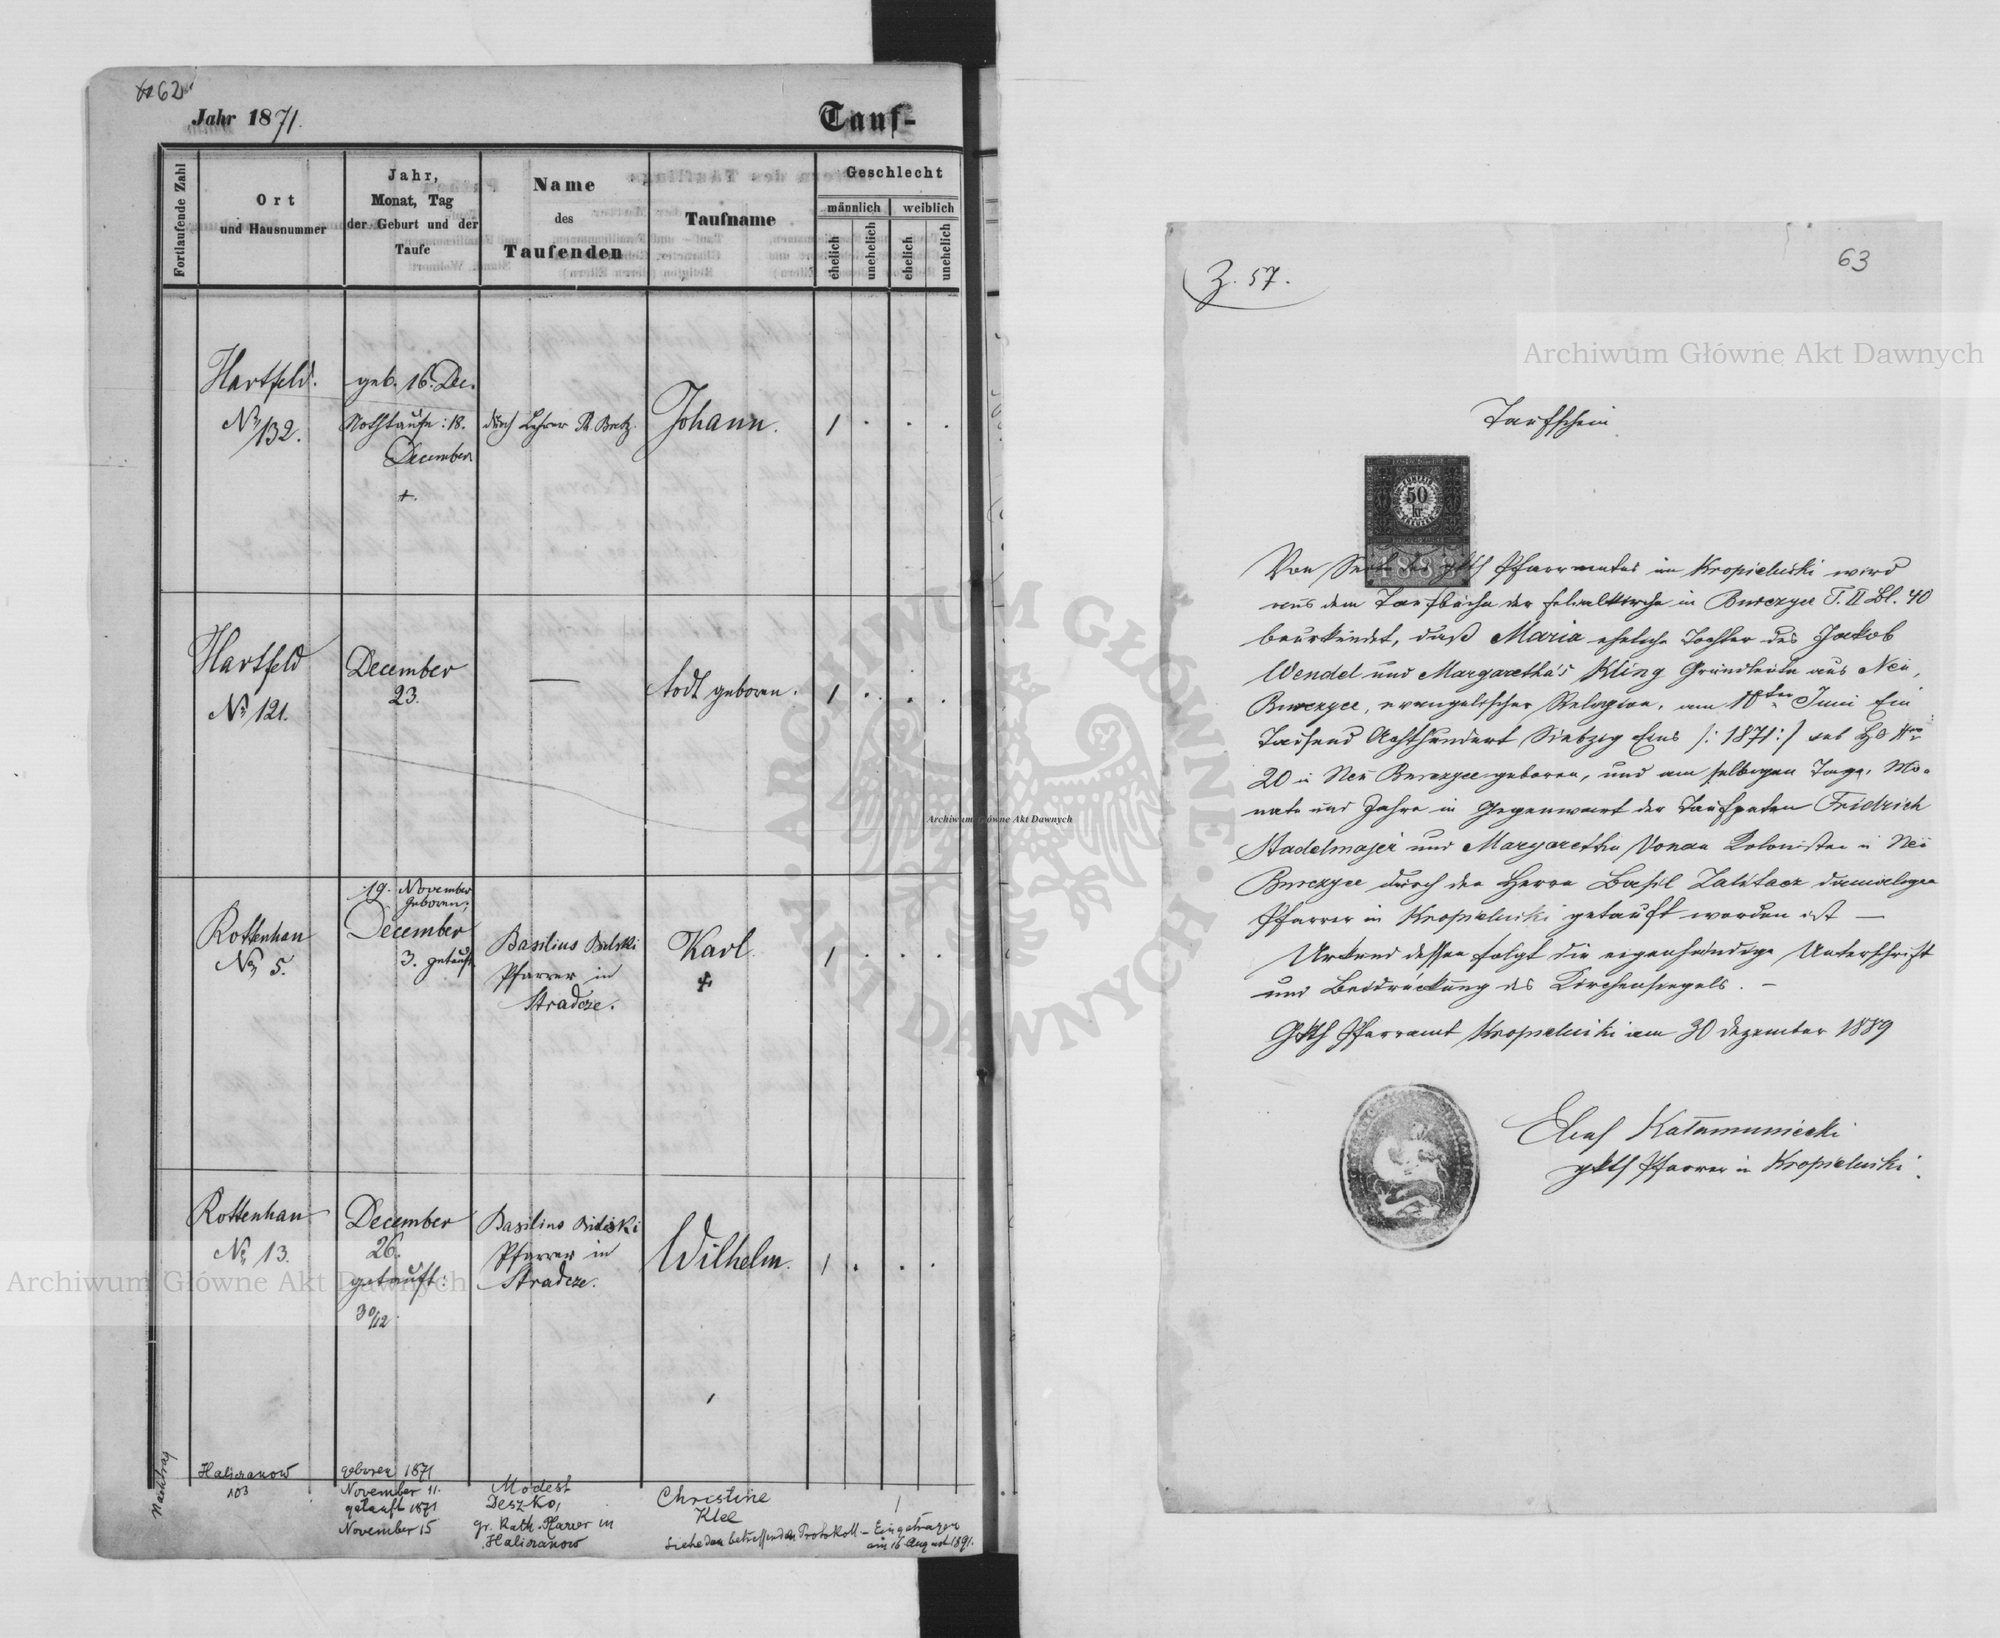 62
Jahr 1871.
Tauf-
Fortlaufende Zahl
Ort
und Hausnummer
Jahr,
Monat, Tag
der Geburt und der
Taufe
Name
des
Taufenden
Taufname
Geschlecht
männlich
weiblich
ehelich
unehelich
ehelich
unehelich
Hartfeld.
No 132.
geb. 16. Dec.
Nothtaufe: 18.
December
+.
durch Lehrer
Johann.
1 . . .
Hartfeld
No 121.
December
23.
—
todt geboren.
1 . . .
Rottenhan
No 5.
19. November
geboren;
December
3. getauft
Basilius Bielski
Pfarrer in
Stradcze.
Karl.
1 . . .
Rottenhan
No 13.
December
26.
getauft:
30/12.
Basilius Bielski
Pfarrer in
Stradcze.
Wilhelm.
1 . . .
Nachtrag
Haliczanow
103
geboren 1871
November 11.
getauft 1871
November 15
Modest
Deszko,
gr. Kath. Pfarrer in
Haliczanow
Christine
Klee
1
Siehe den betreffenden Protokoll – Eingetragen
am 16 August 1891.
63
Z. 57.
Taufschein
50
kr.
Von Seite des gkth Pfarramtes in Kropielniki wird
aus dem Taufbuche der Filialkirche in Burczyce T. II Bl. 40
beurkundet, daß Maria eheliche Tochter des Jakob
Wendel und Margaretha's Kling Grundleute aus Neu
Burczyce, evangelischer Religion, am Juni Ein
Tausend Achthundert Siebzig Eins /: 1871 :/ sub
20 in Neu Burczyce geboren, und am selbigen Tage, Mo-
nate und Jahre in Gegenwart der Taufpaten Fridrich
Stadelmajer und Margaretha Vonau Kolonisten in Neu
Burczyce durch den Herrn Basil damaligen
Pfarrer in Kropielniki getauft worden ist —
Urkund dessen folgt die eigenhändige Unterschrift
und Beidrückung des Kirchensiegels. —
Gkth Pfarramt Kropielniki am 30 Dezember 1889
gkth Pfarrer in Kropielniki.
Archiwum Główne Akt Dawnych
Archiwum Główne Akt Dawnych
Archiwum Główne Akt Dawnych
ARCHIWUM GŁÓWNE AKT DAWNYCH